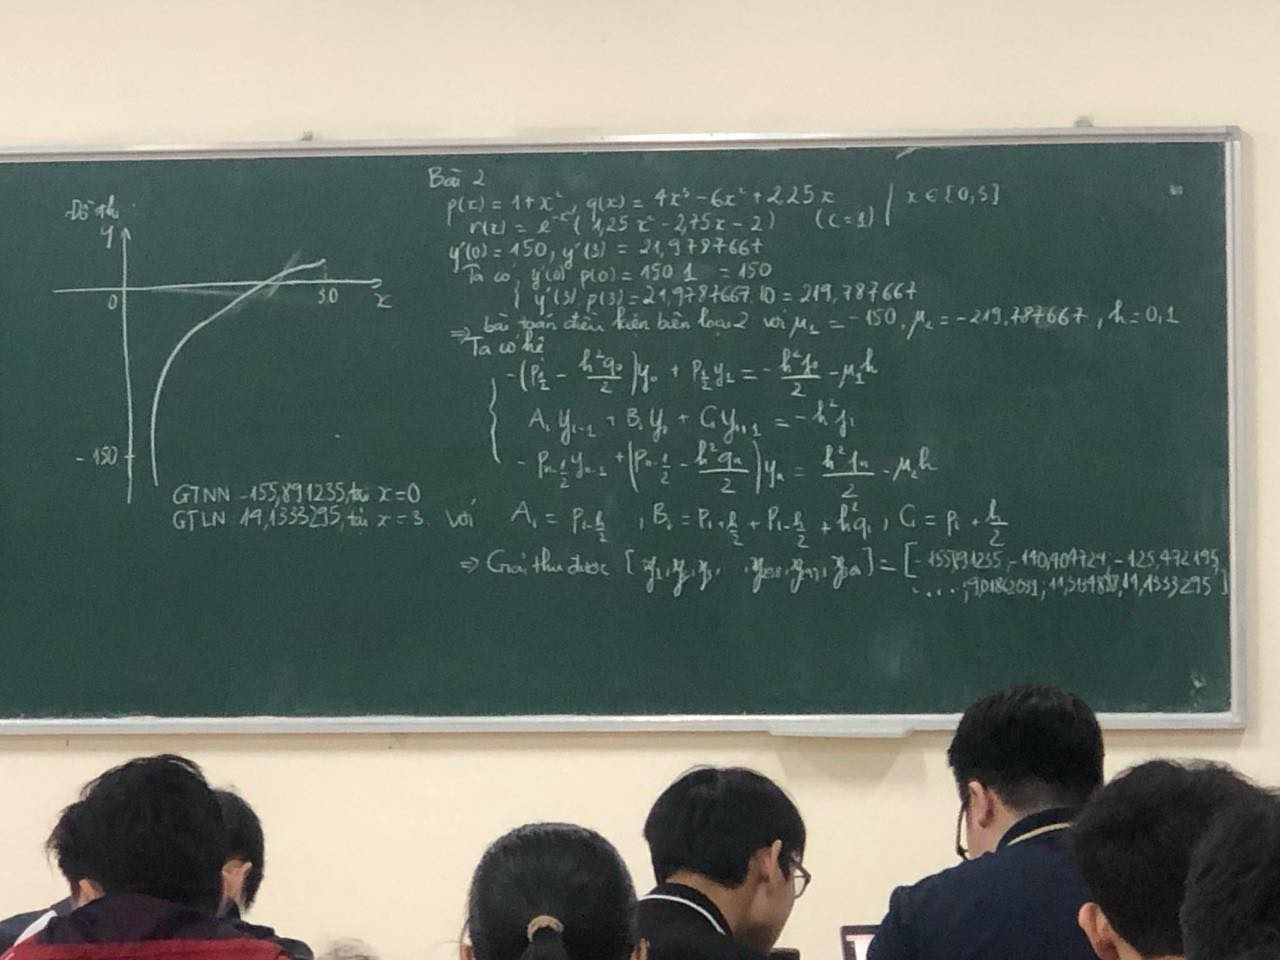 Đồ thị
y
0
30
x
-150
GTNN -155,891235, tại x=0
GTLN 14,1333295, tại x=3.
Bài 2
p(x) = 1+x², q(x) = 4x³ - 6x² + 2,25x | x ∈ [0,3]
(1,25x² - 2,75x - 2) (c=1)
y'(0) = 150, y'(3) = 21,9787667
Ta có { y'(0) p(0) = 150.1 = 150
y'(3) p(3) = 21,9787667.10 = 219,787667
⇒ bài toán điều kiện biên loại 2 với μ₁ = -150, μ₂ = -219,787667, h = 0,1
Ta có hệ
-(P½ - h²q₀/2)y₀ + P½y₁ = -h²f₀/2 - μ₁h
Aᵢyᵢ₋₁ + Bᵢyᵢ + Cᵢyᵢ₊₁ = -h²fᵢ
-Pₙ₋½yₙ₋₁ + (Pₙ₋½ - h²qₙ/2)yₙ = h²fₙ/2 - μ₂h
Với Aᵢ = Pᵢ₋h/2, Bᵢ = Pᵢ₊h/2 + Pᵢ₋h/2 + h²qᵢ, Cᵢ = Pᵢ + h/2
⇒ Giải thu được = [-155,891235, -140,404724, -125,472195,
....; 14,1333295]